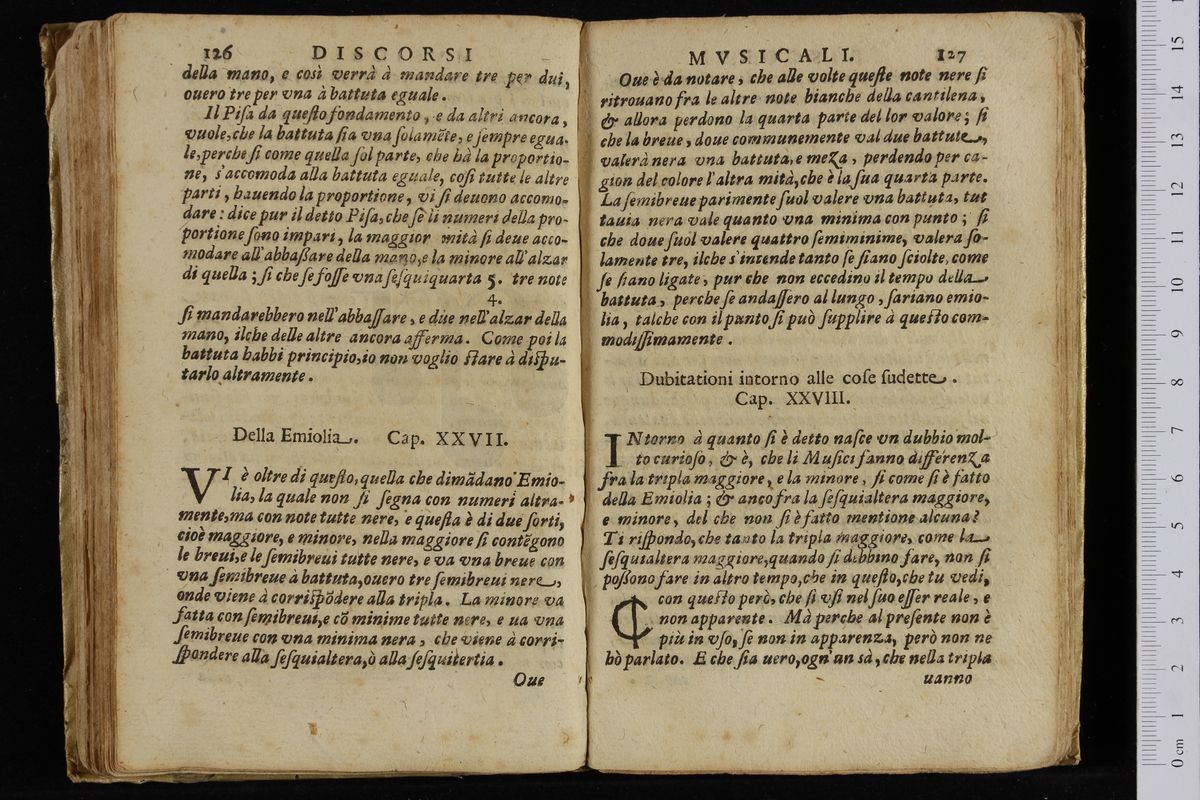 126 DISCORSI
della mano, e così verrà à mandare tre per dui,
ouero tre per vna à battuta eguale.
Il Pisa da questo fondamento, e da altri ancora,
vuole, che la battuta sia vna solamẽte, e sempre egua-
le, perche si come quella sol parte, che hà la proportio-
ne, s'accomoda alla battuta eguale, cosi tutte le altre
parti, hauendo la proportione, vi si deuono accomo-
dare: dice pur il detto Pisa, che se li numeri della pro-
portione sono impari, la maggior mità si deue acco-
modare all'abbaßare della mano, e la minore all'alzar
di quella; si che se fosse vna sesquiquarta 5. tre note
4.
si mandarebbero nell'abbassare, e due nell'alzar della
mano, ilche delle altre ancora afferma. Come poi la
battuta habbi principio, io non voglio stare à dispu-
tarlo altramente.
Della Emiolia. Cap. XXVII.
VI è oltre di questo, quella che dimãdano Emio-
lia, la quale non si segna con numeri altra-
mente, ma con note tutte nere, e questa è di due sorti,
cioè maggiore, e minore, nella maggiore si contẽgono
le breui, e le semibreui tutte nere, e va vna breue con
vna semibreue à battuta, ouero tre semibreui nere,
onde viene à corrispõdere alla tripla. La minore va
fatta con semibreui, e cõ minime tutte nere, e ua vna
semibreue con vna minima nera, che viene à corri-
spondere alla sesquialtera, ò alla sesquitertia.
Oue
MVSICALI. 127
Oue è da notare, che alle volte queste note nere si
ritrouano fra le altre note bianche della cantilena,
& allora perdono la quarta parte del lor valore; si
che la breue, doue communemente val due battute,
valerà nera vna battuta, e meza, perdendo per ca-
gion del colore l'altra mità, che è la sua quarta parte.
La semibreue parimente suol valere vna battuta, tut
tauia nera vale quanto vna minima con punto; si
che doue suol valere quattro semiminime, valera so-
lamente tre, ilche s'intende tanto se siano sciolte, come
se siano ligate, pur che non eccedino il tempo della
battuta, perche se andassero al lungo, sariano emio-
lia, talche con il punto si può supplire à questo com-
modissimamente.
Dubitationi intorno alle cose sudette.
Cap. XXVIII.
INtorno à quanto si è detto nasce vn dubbio mol-
to curioso, & è, che li Musici fanno differenza
fra la tripla maggiore, e la minore, si come si è fatto
della Emiolia; & anco fra la sesquialtera maggiore,
e minore, del che non si è fatto mentione alcuna?
Ti rispondo, che tanto la tripla maggiore, come la
sesquialtera maggiore, quando si debbino fare, non si
poßono fare in altro tempo, che in questo, che tu vedi,
con questo però, che si vsi nel suo esser reale, e
non apparente. Mà perche al presente non è
più in vso, se non in apparenza, però non ne
hò parlato. E che sia uero, ogn'un sà, che nella tripla
uanno